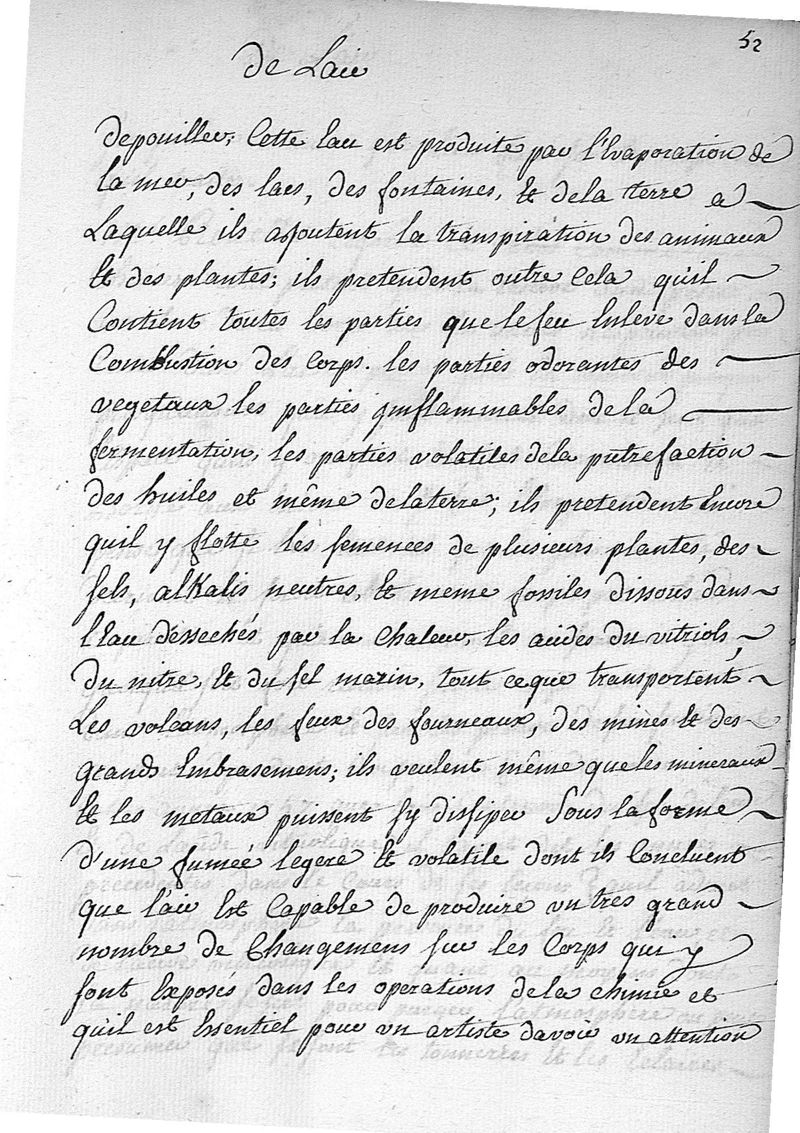 52
De Lair
depouiller; Cette Eau est produite par l'Evaporation de
la mer, des lacs, des fontaines, et de la terre a
Laquelle ils ajoutent la transpiration des animaux
Et des plantes; ils pretendent outre Cela qu'il
Contient toutes les parties que le feu Enleve dans la
Combustion des Corps. les parties odorantes des
vegetaux les parties jnflammables de la
fermentation, les parties volatiles de la putrefaction
des huiles et même de la terre; ils pretendent Encore
quil y flotte les semences de plusieurs plantes, des
sels, alkalis neutres, Et meme fossiles dissous dans
l'Eau dessechés par la Chaleur, les acides du vitriol,
du nitre, Et du sel marin, tout ce que transportent
Les volcans, les feux des fourneaux, des mines Et des
grands Embrasemens; ils veulent même que les mineraux
Et les metaux puissent sy dissiper Sous la forme
d'une fumeé legere Et volatile dont ils Concluent
que l'air Est Capable de produire un tres grand
nombre de Changemens sur les Corps qui y
sont Exposés dans les operations de la chimie et
qu'il est Essentiel pour un artiste davoir un attention